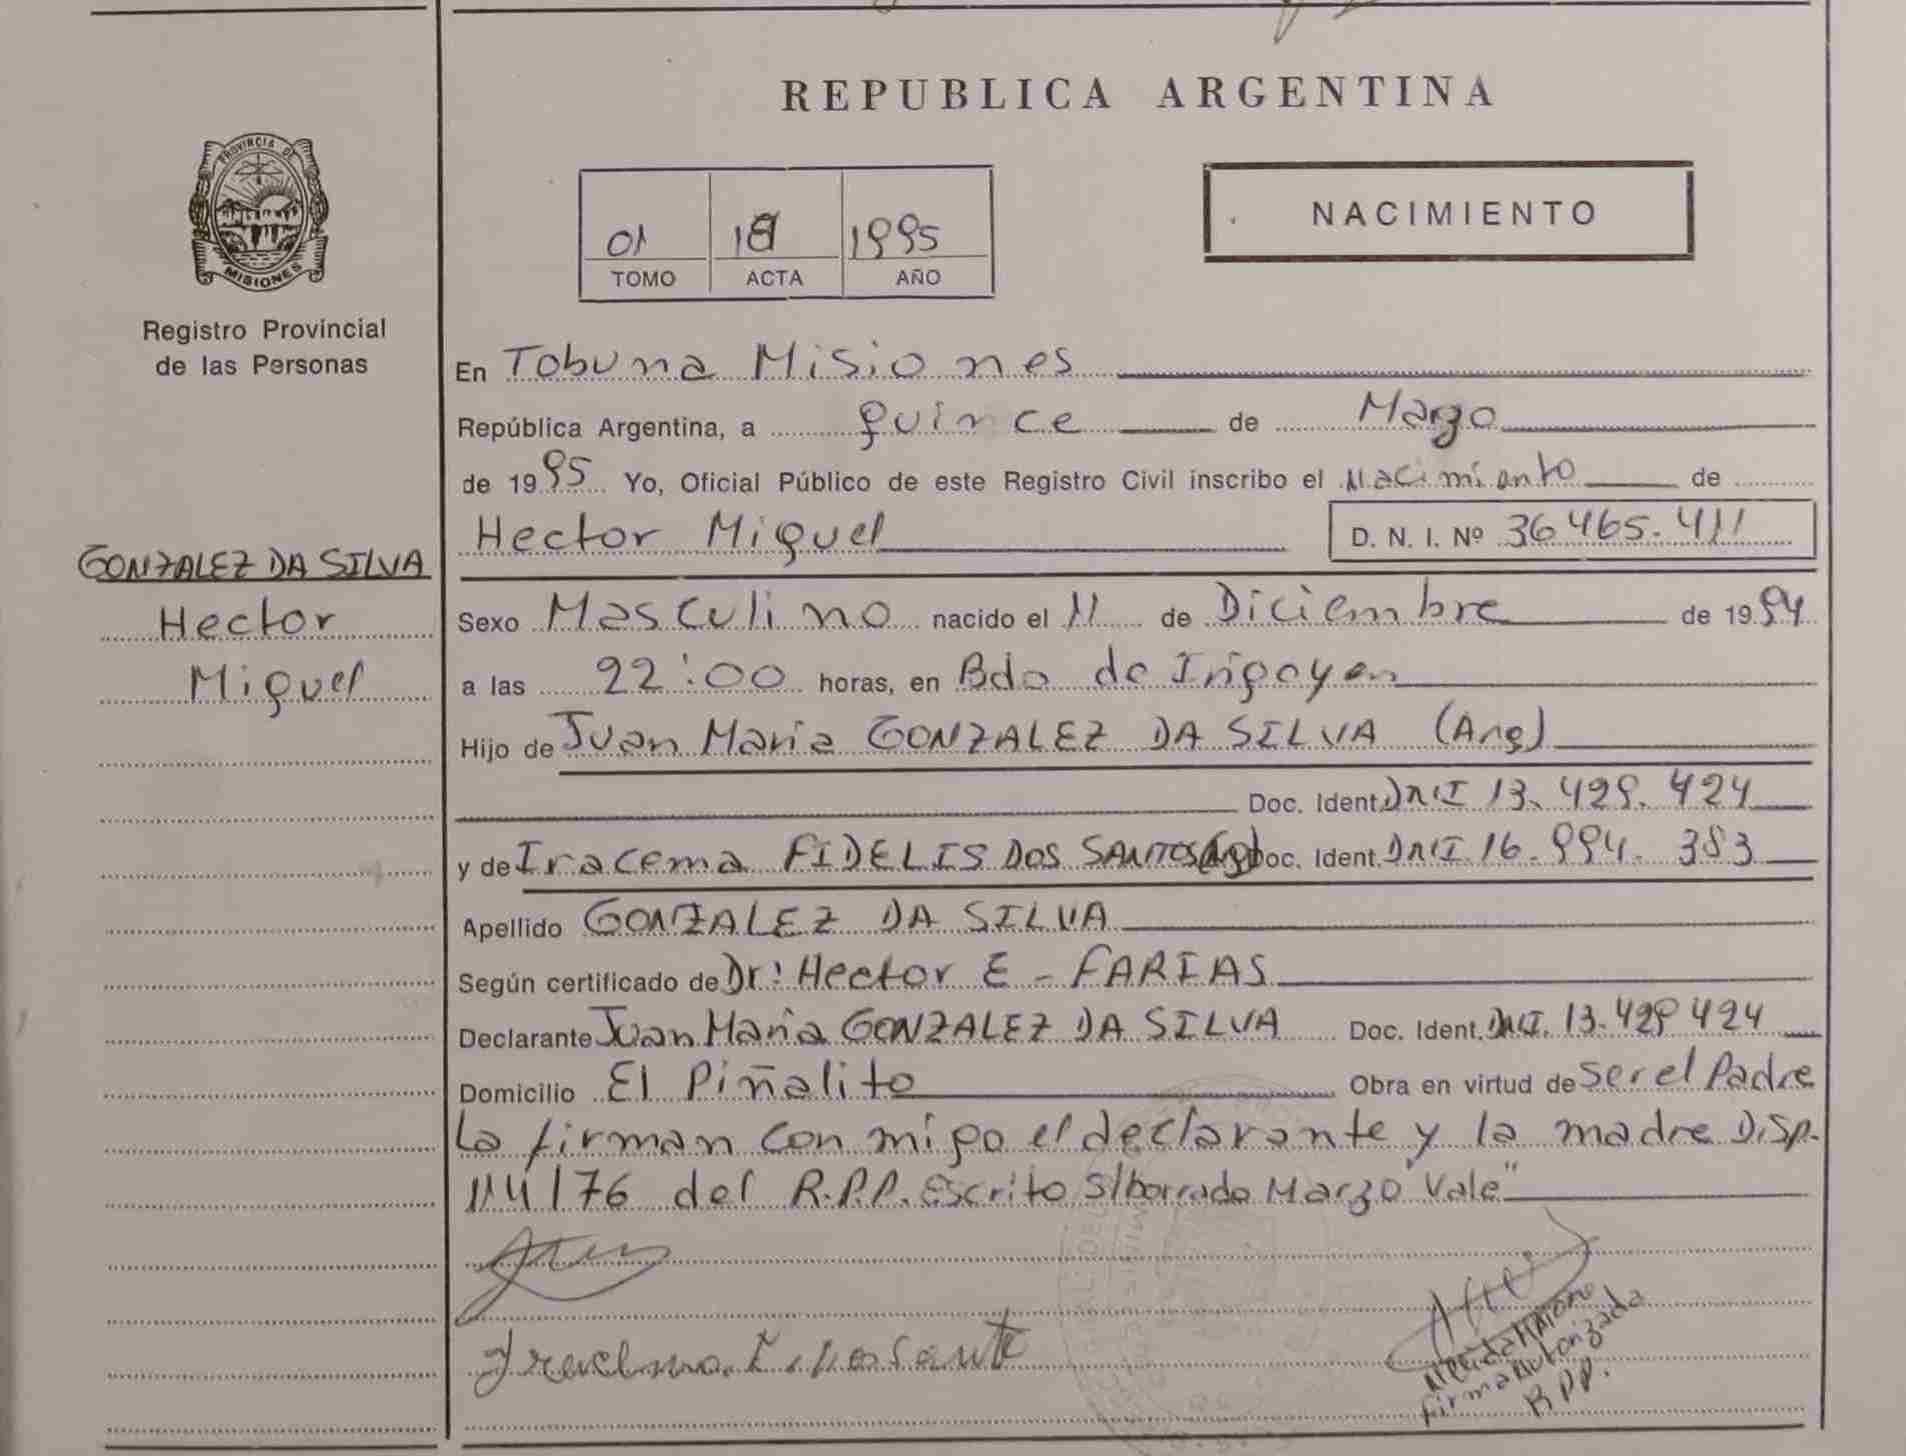 REPUBLICA ARGENTINA
PROVINCIA DE
MISIONES
Registro Provincial
de las Personas
01 18 1995
TOMO ACTA AÑO
NACIMIENTO
En Tobuna Misiones
República Argentina, a quince de Marzo
de 1995 Yo, Oficial Público de este Registro Civil inscribo el Nacimiento de
Hector Miguel D. N. I. Nº 36 465.411
GONZALEZ DA SILVA
Hector
Miguel
Sexo Masculino nacido el 11 de Diciembre de 1994
a las 22:00 horas, en Bdo de Irigoyen
Hijo de Juan Maria GONZALEZ DA SILVA (Arg)
Doc. Ident. DNI 13.429.424
y de Iracema FIDELIS DOS SANTOS (Arg) Doc. Ident. DNI 16.994.383
Apellido GONZALEZ DA SILVA
Según certificado de Dr: Hector E - FARIAS
Declarante Juan Maria GONZALEZ DA SILVA Doc. Ident. DNI. 13.429 424
Domicilio El Piñalito Obra en virtud de ser el Padre
La firman con migo el declarante y la madre Disp.
114/76 del R.P.P. Escrito S/borrado Marzo "Vale"
Firma Autorizada
R.P.P.